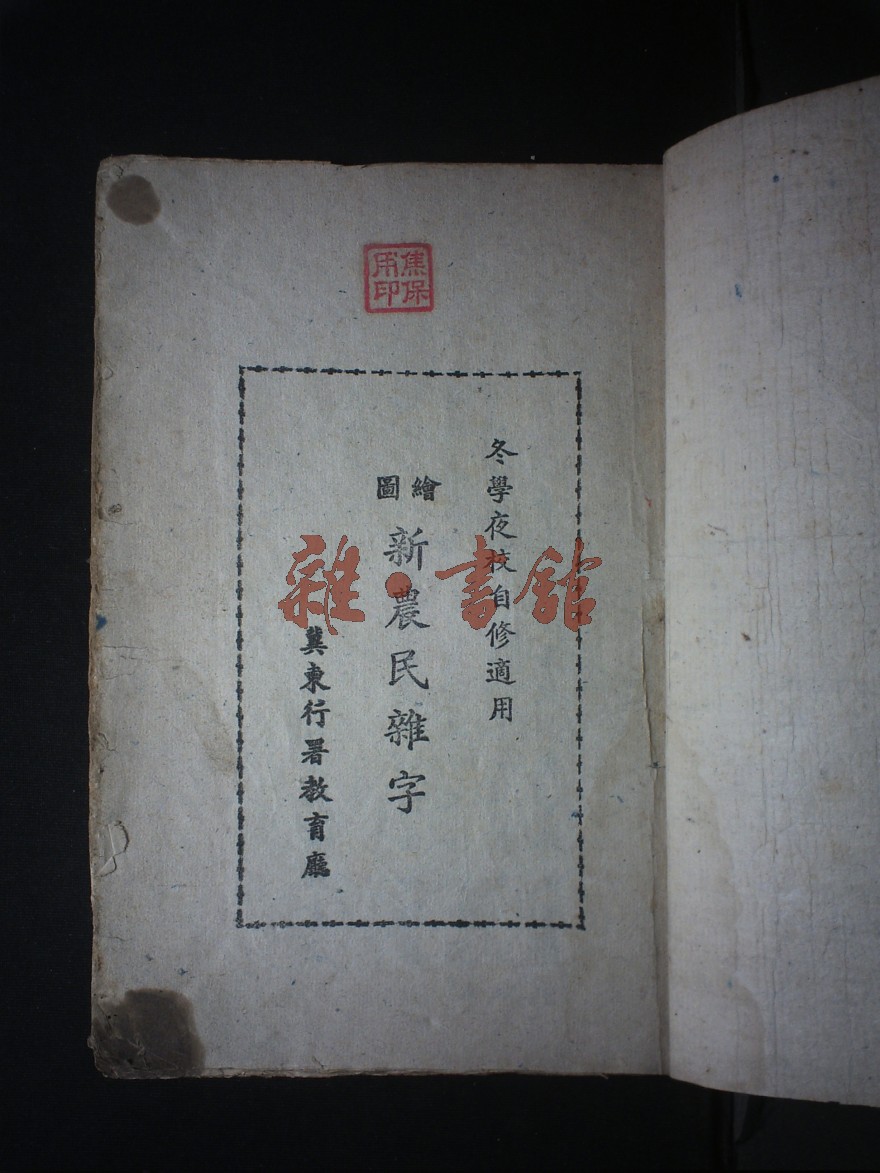 焦保
用印
冬學夜校自修適用
繪圖
新農民雜字
冀東行署教育廳
雜·書館